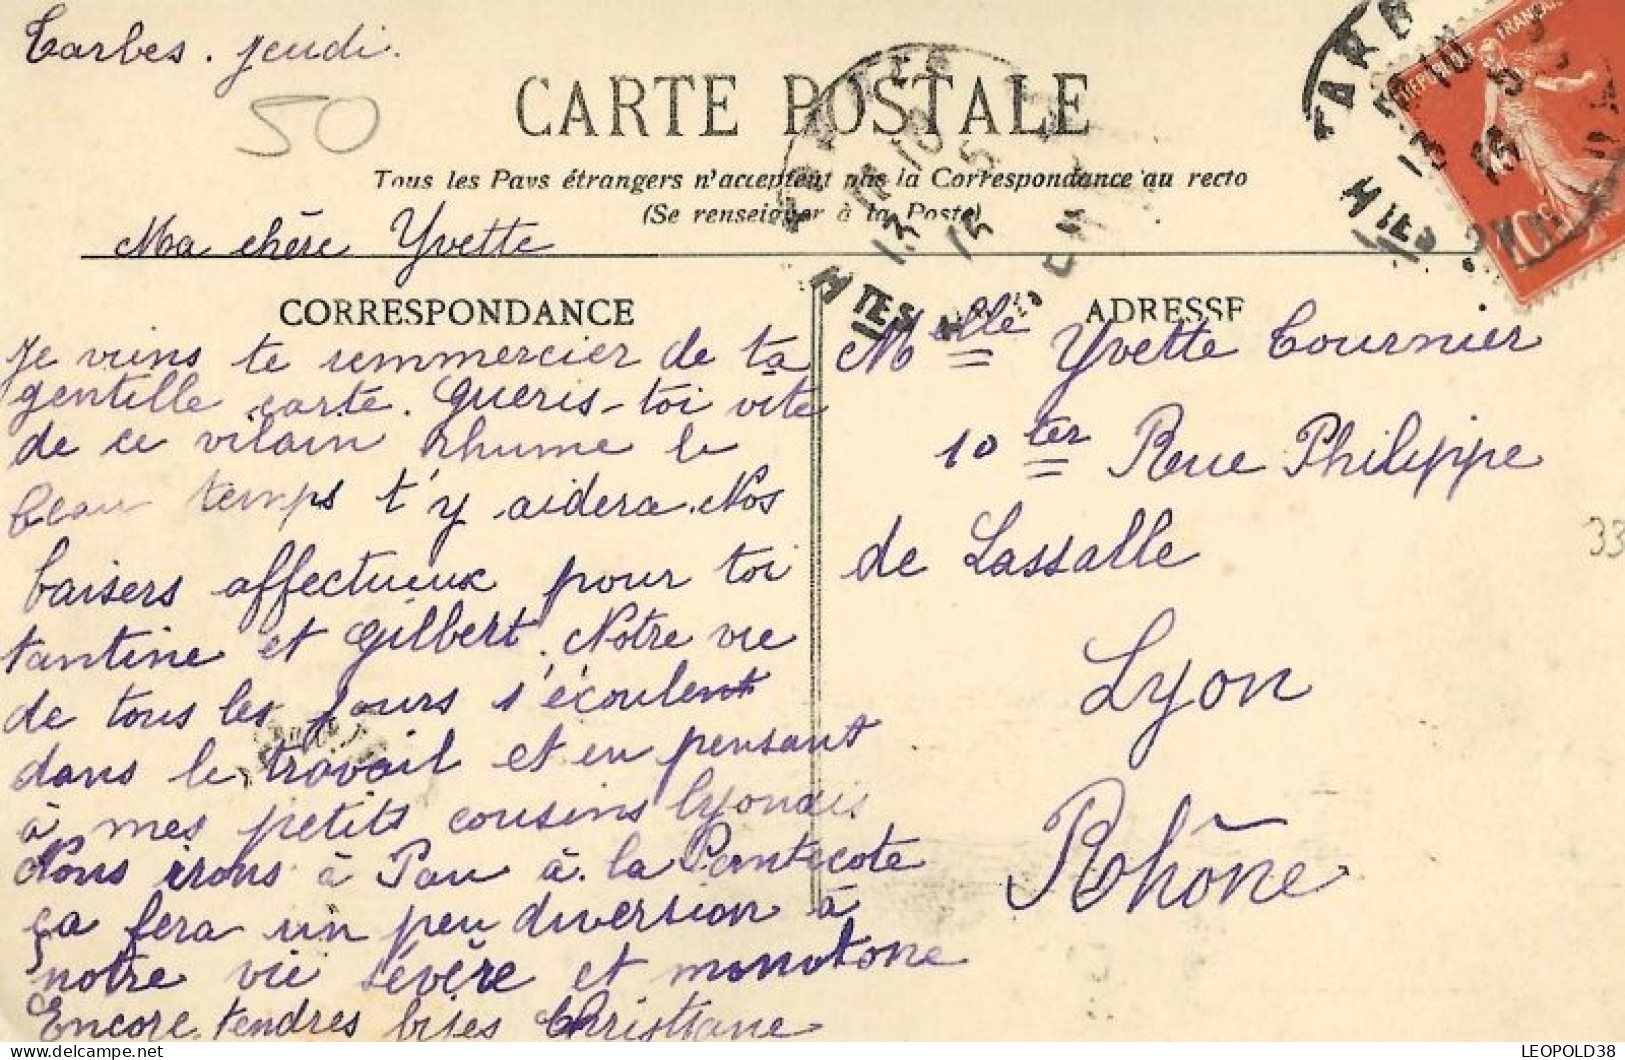 Tarbes. jeudi.
50
CARTE POSTALE
Tous les Pays étrangers n'acceptent pas la Correspondance au recto
(Se renseigner à la Poste)
Ma chère Yvette
CORRESPONDANCE
Je viens te remmercier de ta
gentille carte. Guéris-toi vite
de ce vilain rhume le
beau temps t'y aidera. Nos
baisers affectueux pour toi
tantine et Gilbert. Notre vie
de tous les jours s'écoulent
dans le travail et en pensant
à mes petits cousins lyonais
Nous irons à Pau à la Pentecote
ça fera un peu diversion à
notre vie sévère et monotone
Encore tendres bises Christiane
ADRESSE
Melle Yvette Tournier
10 ter Rue Philippe
de Lassalle
Lyon
Rhône
33
LEOPOLD38